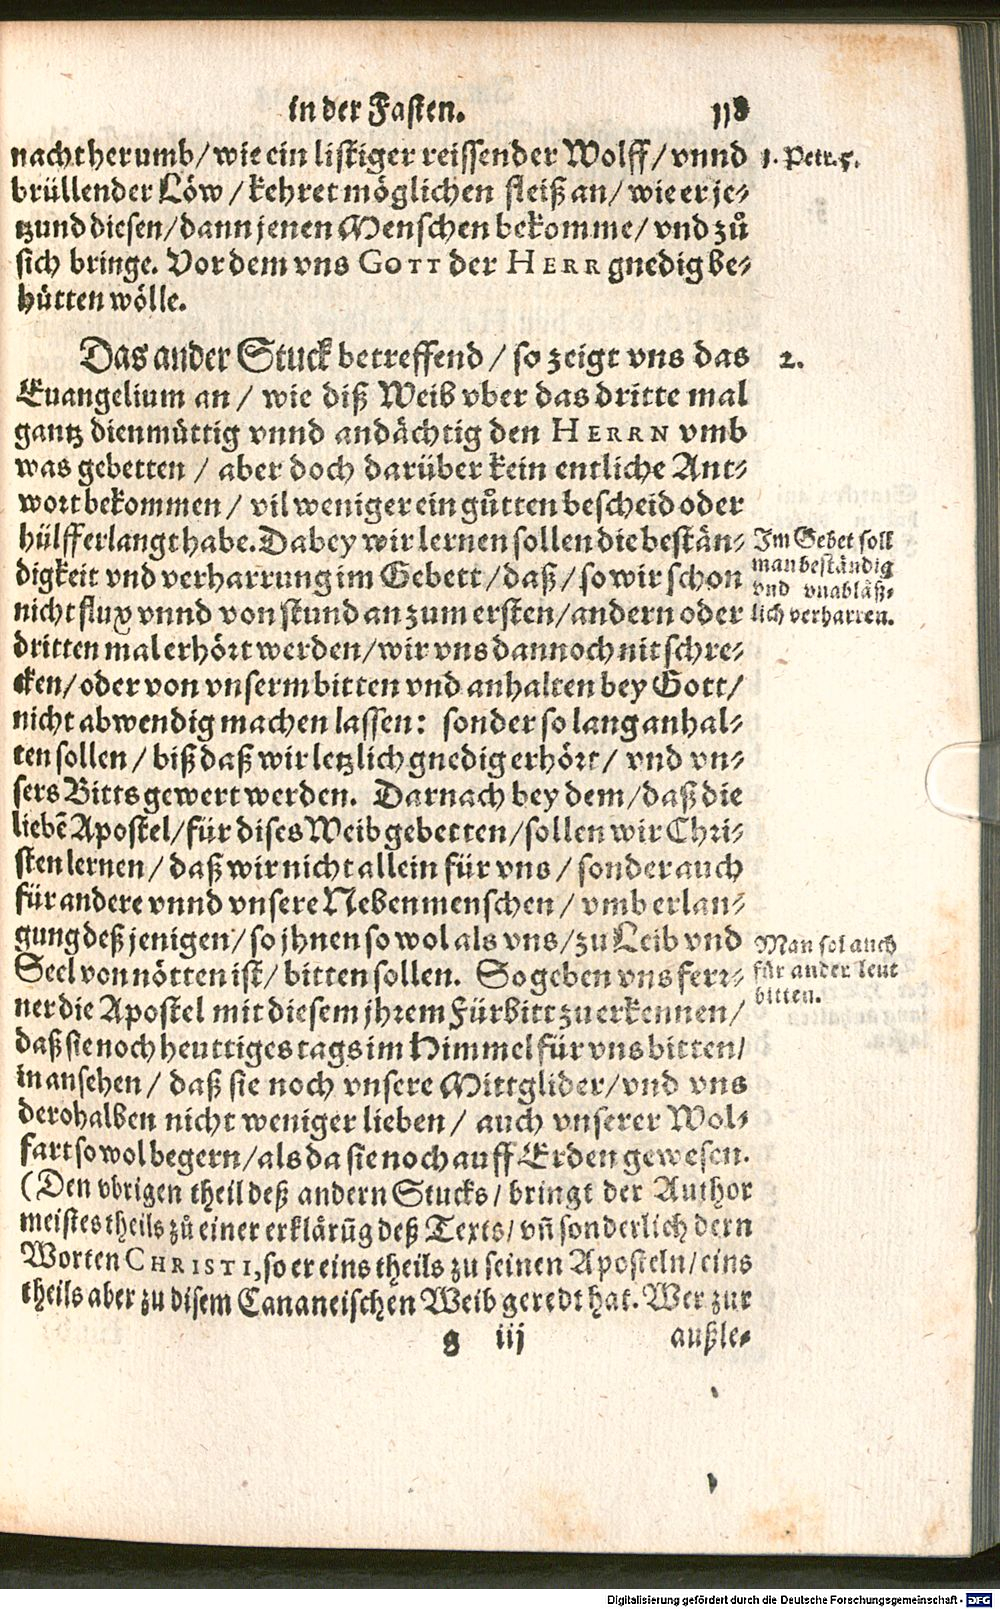 in der Fasten. 118
nacht herumb/ wie ein listiger reissender Wolff/ vnnd
1. Petr. 5.
brüllender Löw/ kehret möglichen fleiß an/ wie er je-
tzund diesen/ dann jenen Menschen bekomme/ vnd zů
sich bringe. Vor dem vns GOTT der HERR gnedig be-
hütten wölle.
Das ander Stuck betreffend/ so zeigt vns das
2.
Euangelium an/ wie diß Weib vber das dritte mal
gantz dienmüttig vnnd andächtig den HERRN vmb
was gebetten/ aber doch darüber kein entliche Ant-
wort bekommen/ vil weniger ein gůtten bescheid oder
hülff erlangt habe. Dabey wir lernen sollen die bestän-
digkeit vnd verharrung im Gebett/ daß/ so wir schon
nicht flux vnnd von stund an zum ersten/ andern oder
dritten mal erhört werden/ wir vns dannoch nit schre-
cken/ oder von vnserm bitten vnd anhalten bey Gott/
nicht abwendig machen lassen: sonder so lang anhal-
ten sollen/ biß daß wir letzlich gnedig erhört/ vnd vn-
sers Bitts gewert werden. Darnach bey dem/ daß die
liebē Apostel/ für dises Weib gebetten/ sollen wir Chri-
sten lernen/ daß wir nicht allein für vns/ sonder auch
für andere vnnd vnsere Nebenmenschen/ vmb erlan-
gung deß jenigen/ so jhnen so wol als vns/ zu Leib vnd
Seel von nötten ist/ bitten sollen. So geben vns ferr-
ner die Apostel mit diesem jhrem Fürbitt zu erkennen/
daß sie noch heuttiges tags im Himmel für vns bitten/
in ansehen/ daß sie noch vnsere Mittglider/ vnd vns
derohalben nicht weniger lieben/ auch vnserer Wol-
fart so wol begern/ als da sie noch auff Erden gewesen.
(Den vbrigen theil deß andern Stucks/ bringt der Author
meistes theils zů einer erklärūg deß Texts/ vñ sonderlich dern
Worten CHRISTI, so er eins theils zu seinen Aposteln/ eins
theils aber zu disem Cananeischen Weib geredt hat. Wer zur
g iij außle-
Im Gebet soll
man beständig
vnd vnabläß-
lich verharren.
Man sol auch
für ander leut
bitten.
Digitalisierung gefördert durch die Deutsche Forschungsgemeinschaft - DFG